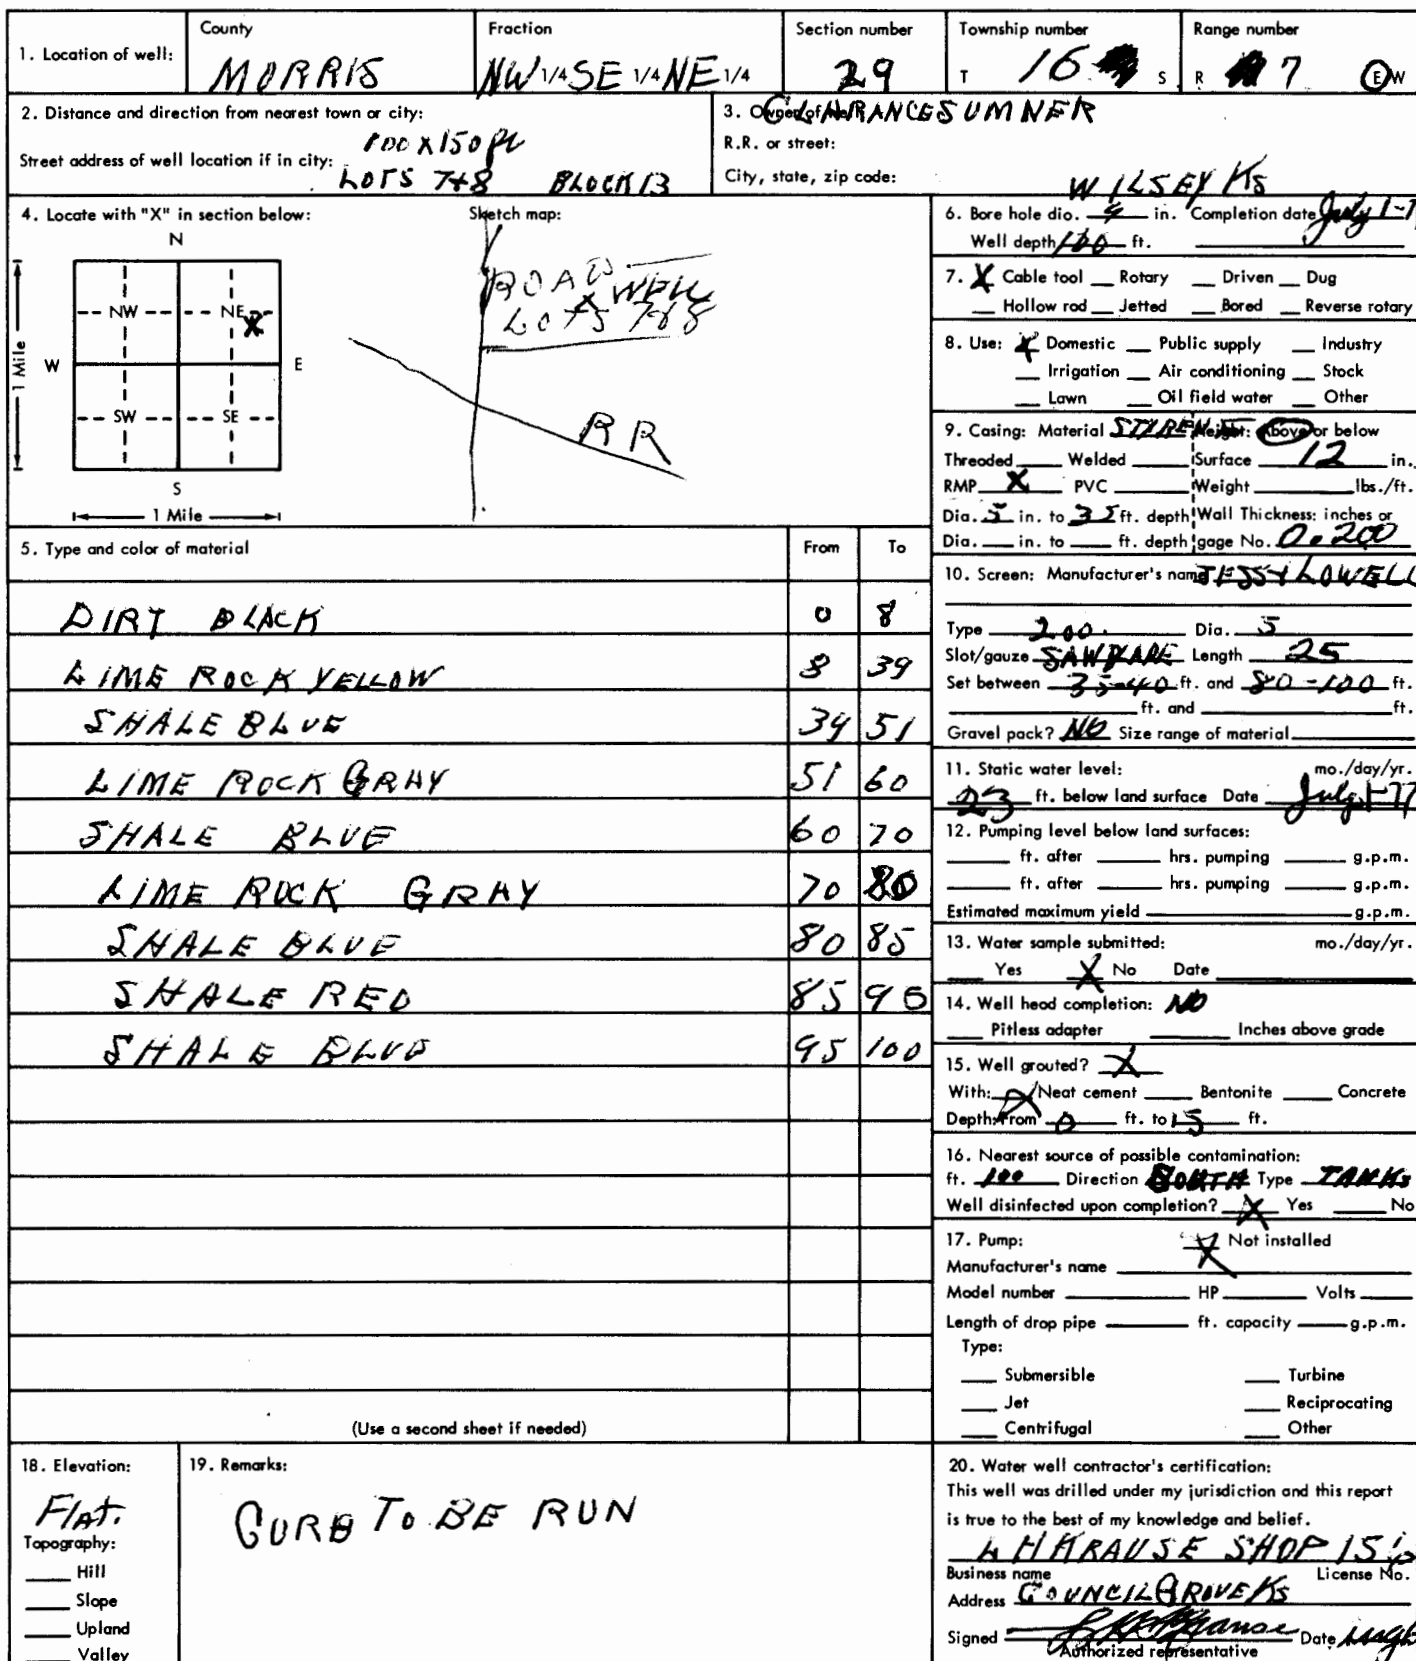 1. Location of well:
County
MORRIS
Fraction
NW 1/4 SE 1/4 NE 1/4
Section number
29
Township number
T 16 S
Range number
R 7 E W
2. Distance and direction from nearest town or city:
100 X 150 ft
Street address of well location if in city:
LOTS 7+8 BLOCK 13
3. Owner of well: CLARANCE SUMNER
R.R. or street:
City, state, zip code:
WILSEY KS
4. Locate with "X" in section below:
N
NW NE X
W E
SW SE
S
1 Mile
1 Mile
Sketch map:
ROAD
X WELL
LOTS 7&8
RR
5. Type and color of material From To
DIRT BLACK 0 8
LIME ROCK YELLOW 8 39
SHALE BLUE 39 51
LIME ROCK GRAY 51 60
SHALE BLUE 60 70
LIME ROCK GRAY 70 80
SHALE BLUE 80 85
SHALE RED 85 95
SHALE BLUE 95 100
(Use a second sheet if needed)
6. Bore hole dia. 9 in. Completion date July 1-7
Well depth 100 ft.
7. X Cable tool Rotary Driven Dug
Hollow rod Jetted Bored Reverse rotary
8. Use: X Domestic Public supply Industry
Irrigation Air conditioning Stock
Lawn Oil field water Other
9. Casing: Material STIRENE Height: Above or below
Threaded Welded Surface 12 in.
RMP X PVC Weight lbs./ft.
Dia. 5 in. to 35 ft. depth Wall Thickness: inches or
Dia. in. to ft. depth gage No. 0.200
10. Screen: Manufacturer's name JESS LOWELL
Type 200. Dia. 5
Slot/gauze SAW BLADE Length 25
Set between 35-40 ft. and 80-100 ft.
ft. and ft.
Gravel pack? NO Size range of material
11. Static water level: mo./day/yr.
23 ft. below land surface Date July 1-77
12. Pumping level below land surfaces:
ft. after hrs. pumping g.p.m.
ft. after hrs. pumping g.p.m.
Estimated maximum yield g.p.m.
13. Water sample submitted: mo./day/yr.
Yes X No Date
14. Well head completion: NO
Pitless adapter Inches above grade
15. Well grouted? X
With: X Neat cement Bentonite Concrete
Depth: From 0 ft. to 15 ft.
16. Nearest source of possible contamination:
ft. 100 Direction SOUTH Type TANKS
Well disinfected upon completion? X Yes No
17. Pump: X Not installed
Manufacturer's name
Model number HP Volts
Length of drop pipe ft. capacity g.p.m.
Type:
Submersible Turbine
Jet Reciprocating
Centrifugal Other
18. Elevation:
Flat.
Topography:
Hill
Slope
Upland
Valley
19. Remarks:
CURB TO BE RUN
20. Water well contractor's certification:
This well was drilled under my jurisdiction and this report
is true to the best of my knowledge and belief.
L H KRAUSE SHOP 15
Business name License No.
Address COUNCIL GROVE KS
Signed L H Krause Date
Authorized representative